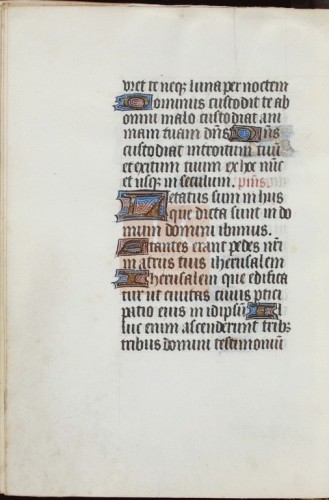 uret te neq; luna per noctem
Dominus custodit te ab
omni malo custodiat ani
mam tuam dn̄s. Dn̄s
custodiat introitum tuū
et exitum tuum ex hoc nūc
et usq; in seculum. p̄us.
Letatus sum in hiis
que dicta sunt in do
mum domini ibimus.
Stantes erant pedes nr̄i
in atriis tuis iherusalem
Iherusalem que edifica
tur ut ciuitas cuius p̄tici
patio eius in idipsū Il
luc enim ascenderunt trib;
tribus domini testimoniū